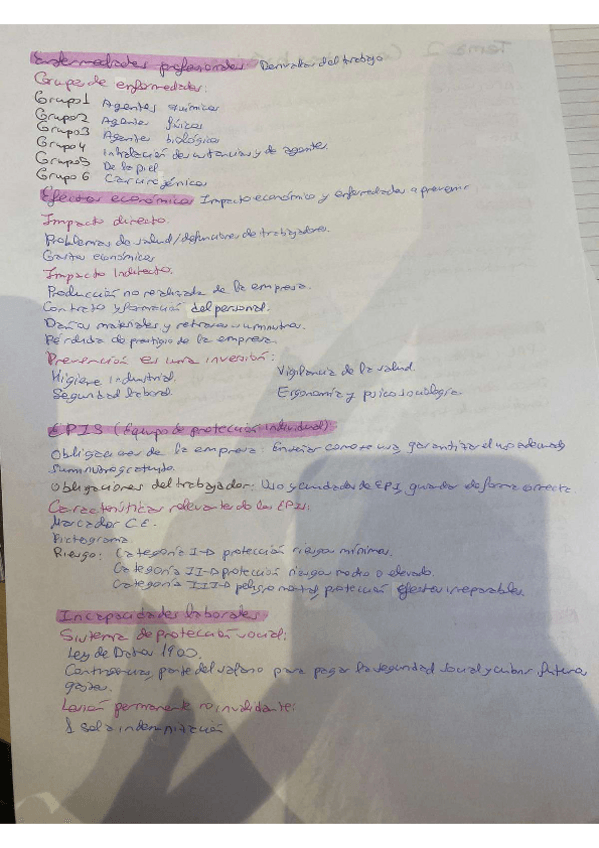 Enfermedades profesionales Derivadas del trabajo
Grupos de enfermedades:
Grupo 1 Agentes químicos
Grupo 2 Agentes físicos
Grupo 3 Agentes biológicos
Grupo 4 Inhalación de sustancias y de agentes
Grupo 5 De la piel
Grupo 6 Carcinogénicos
Efectos económicos Impacto económico y enfermedades a prevenir
Impacto directo.
Problemas de salud/defunciones de trabajadores.
Gastos económicos
Impacto Indirecto.
Producción no realizada de la empresa.
Contrato y formación del personal.
Daños materiales y retrasos suministros.
Pérdida de prestigio de la empresa.
Prevención es una inversión:
Higiene Industrial. Vigilancia de la salud.
Seguridad laboral. Ergonomía y psicosociología.
EPIS (Equipo de protección individual)
Obligaciones de la empresa: Enseñar como se usa, garantizar el uso adecuado
Suministro gratuito.
Obligaciones del trabajador: Uso y cuidados de EPI, guardar de forma correcta.
Características relevantes de los EPIS:
Marcador C.E.
Pictograma
Riesgo: Categoría I → protección riesgos mínimos.
Categoría II → protección riesgo medio o elevado.
Categoría III → peligro mortal, protección efectos irreparables.
Incapacidades laborales
Sistema de protección social:
Ley de Datos 1900.
Contingencias, parte del salario para pagar la seguridad social y cubrir futuros
gastos.
Lesión permanente no invalidante:
1 sola indemnización